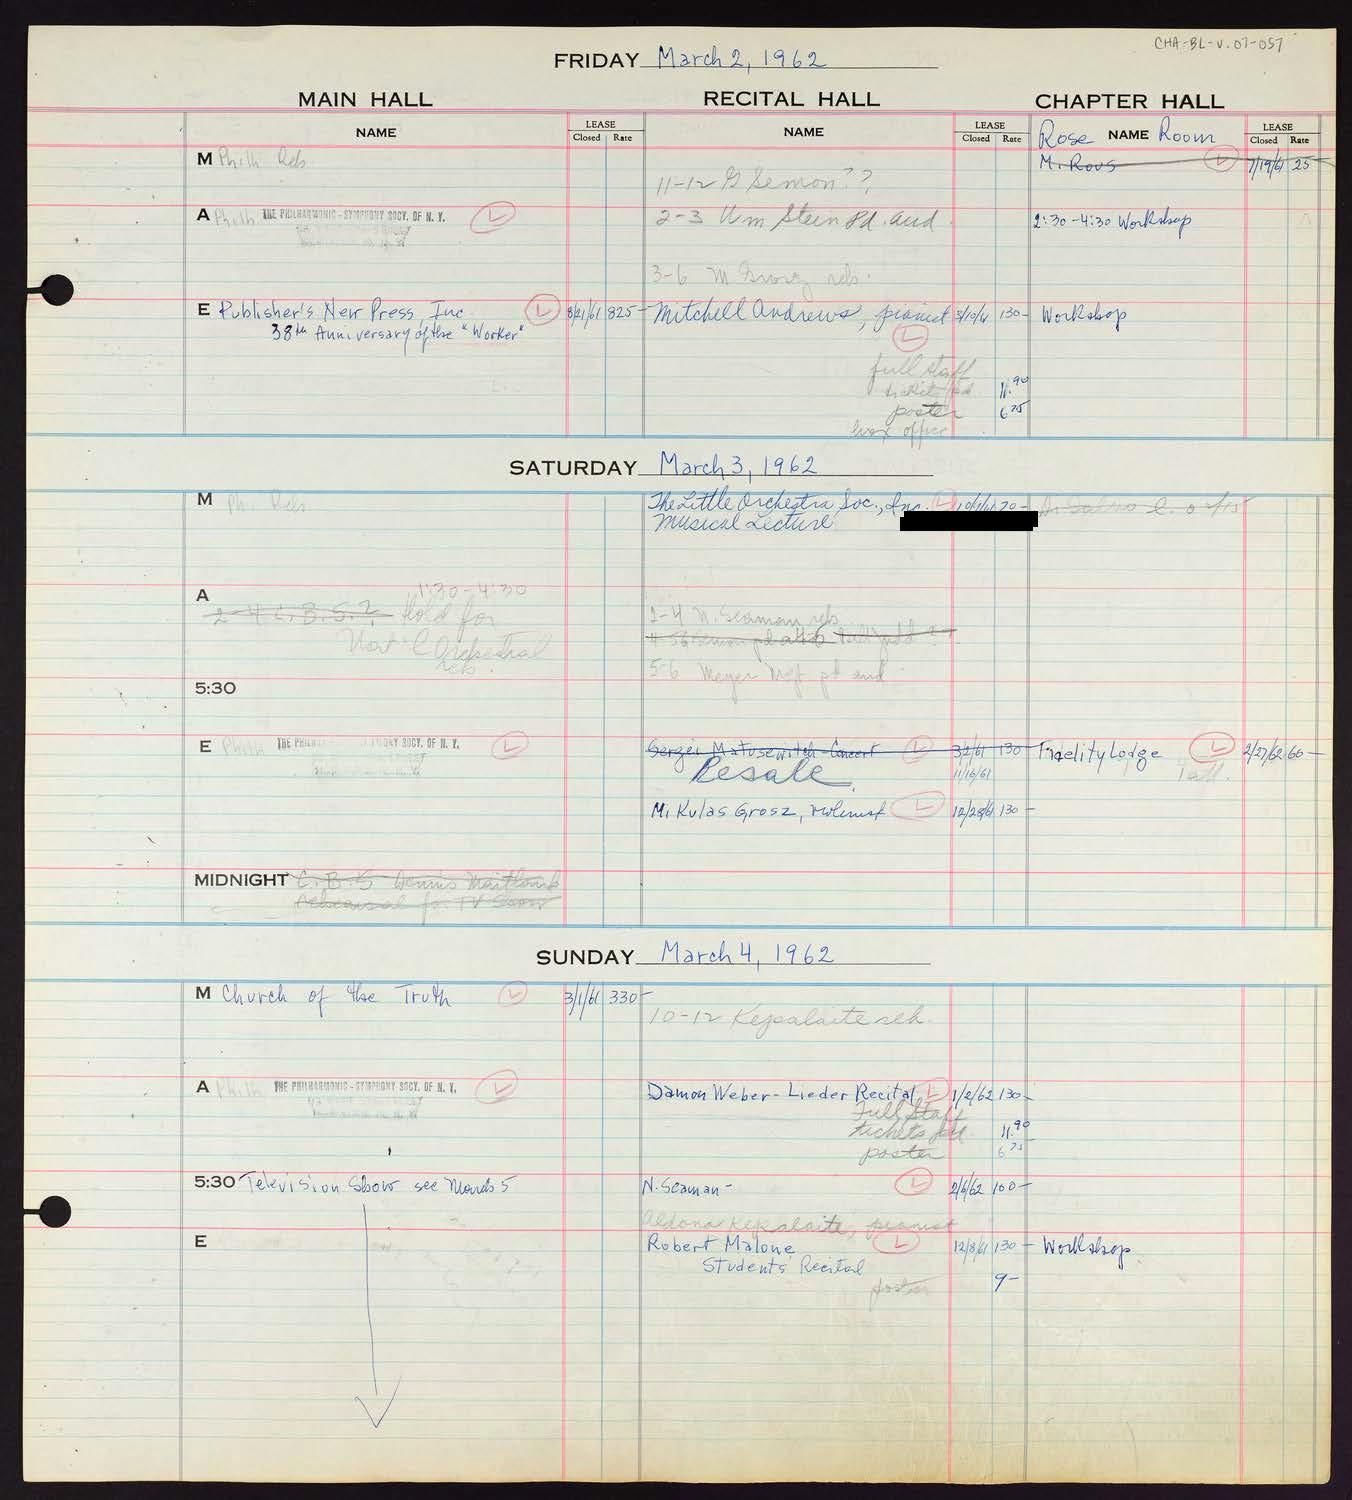 CHA-BL-V.07-057
FRIDAY March 2, 1962
MAIN HALL RECITAL HALL CHAPTER HALL
NAME LEASE Closed Rate NAME LEASE Closed Rate Rose NAME Room LEASE Closed Rate
M Philh Reh. M. Rous L 7/19/61 25-
11-12 G Semon??
A Philh THE PHILHARMONIC-SYMPHONY SOCY. OF N. Y. L 2-3 Wm Stein Pd. aud 2:30-4:30 Workshop
3-6 M Grosz reh.
E Publisher's New Press, Inc. L 8/21/61 825- Mitchell Andrews, pianist 5/10/61 130- Workshop
38th Anniversary of the "Worker" L
full staff
tickets pd 11.90
poster 6 75
box office
SATURDAY March 3, 1962
M Ph. Reh. The Little Orchestra Soc., Inc. L 10/1/61 70-
Musical Lecture
1:30-4:30
A 2-4 C.B.S.? Hold for 2-4 N. Seaman reh
Nat'l Orchestral
reh. 5-6 Meyer pd aud
5:30
E Philh THE PHILHARMONIC-SYMPHONY SOCY. OF N. Y. L Sergei Matusewitch-Concert L 3/2/61 130- Fidelity Lodge L 2/27/62 60-
Resale 11/16/61
Mikulas Grosz, violinist L 12/28/61 130-
MIDNIGHT C.B.S Dennis
rehearsal for TV Show
SUNDAY March 4, 1962
M Church of the Truth L 3/1/61 330-
10-12 Kepalaite reh.
A Philh THE PHILHARMONIC-SYMPHONY SOCY. OF N. Y. L Damon Weber-Lieder Recital L 1/2/62 130-
Full Staff
tickets pd 11.90
poster 6 75
5:30 Television Show see March 5 N. Seaman- L 2/6/62 100-
Aldona Kepalaite, pianist
E Robert Malone L 12/8/61 130- Workshop
Students' Recital
poster 9-